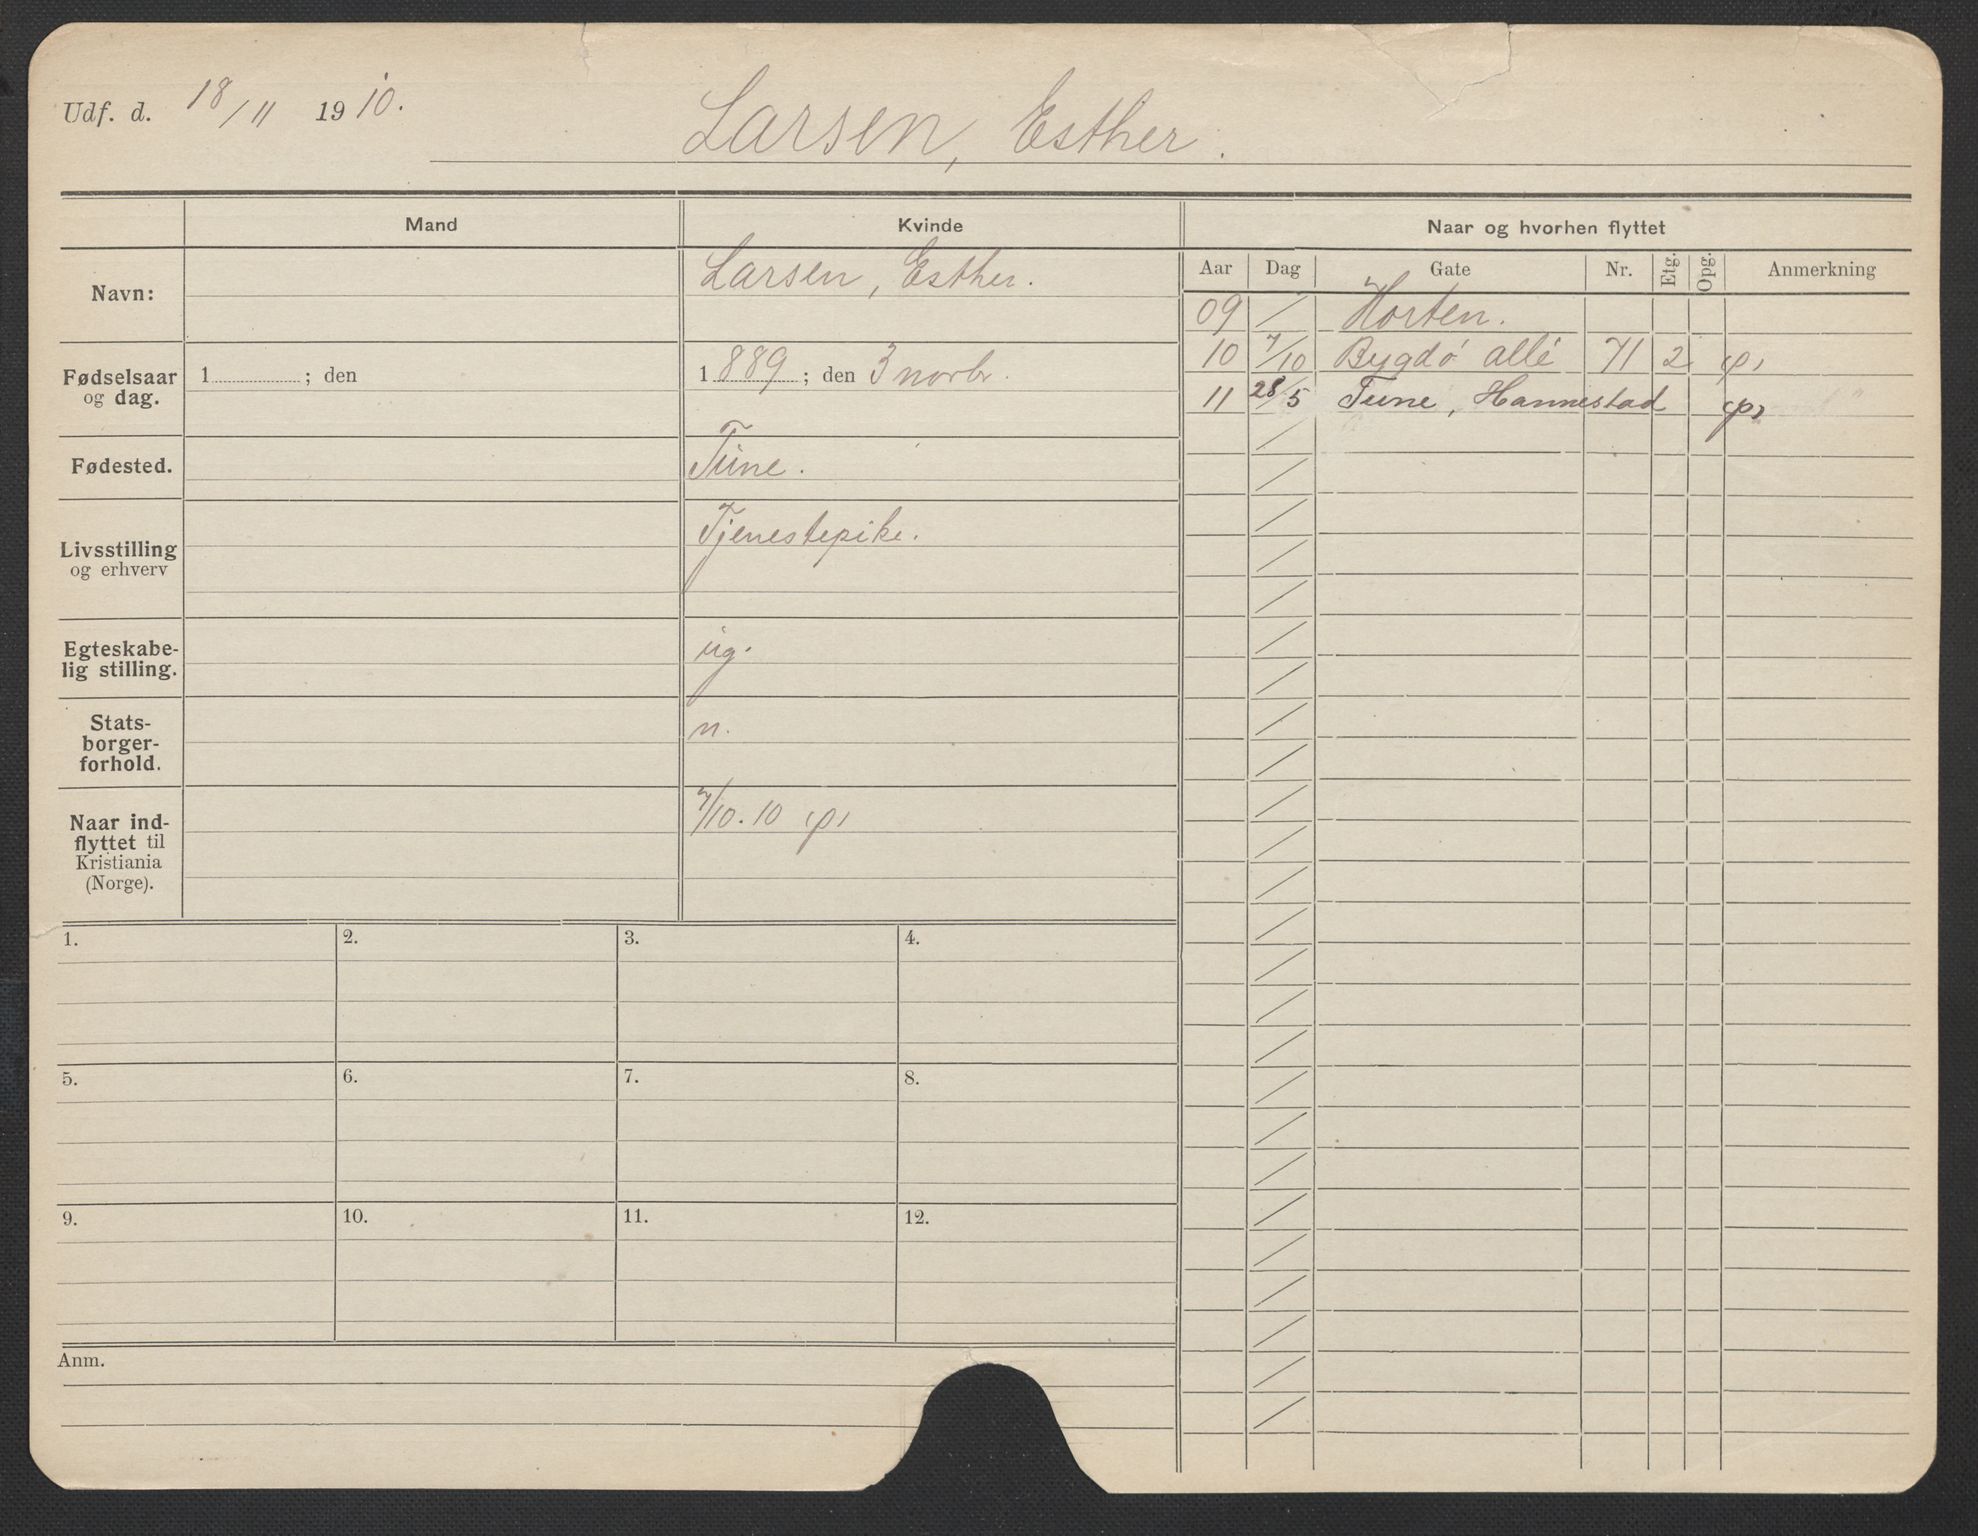 Udf. d. 18/11 1910.
Larsen, Esther.
Mand
Kvinde
Naar og hvorhen flyttet
Aar Dag Gate Nr. Etg. Opg. Anmerkning
Navn:
Larsen, Esther.
09 / Horten.
10 7/10 Bygdø allé 71 2
11 28/5 Tune, Hannestad
Fødselsaar
og dag.
1 ; den
1889 ; den 3 novbr.
Fødested.
Tune.
Livsstilling
og erhverv
Tjenestepike.
Egteskabe-
lig stilling.
ug.
Stats-
borger-
forhold.
n.
Naar ind-
flyttet til
Kristiania
(Norge).
7/10.10
1. 2. 3. 4.
5. 6. 7. 8.
9. 10. 11. 12.
Anm.